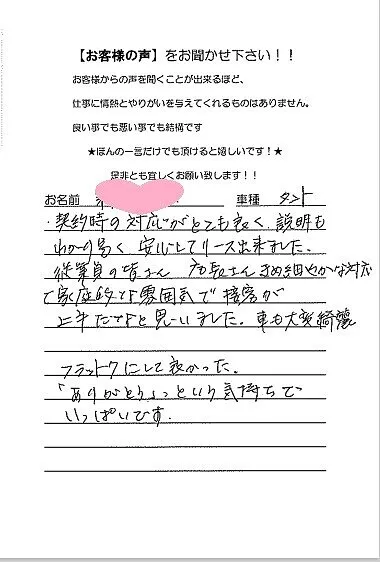 【お客様の声】をお聞かせ下さい！！
お客様からの声を聞くことが出来るほど、
仕事に情熱とやりがいを与えてくれるものはありません。
良い事でも悪い事でも結構です
★ほんの一言だけでも頂けると嬉しいです！★
是非とも宜しくお願い致します！！
お名前 車種 タント
・契約時の対応がとても良く、説明も
わかり易く 安心してリース出来ました。
従業員の皆さん 店長さん きめ細やかな対応
で家庭的な雰囲気で接客が
上手だなと思いました。車も大変綺麗
フラット7にして良かった。
「ありがとう」っという気持ちで
いっぱいです.